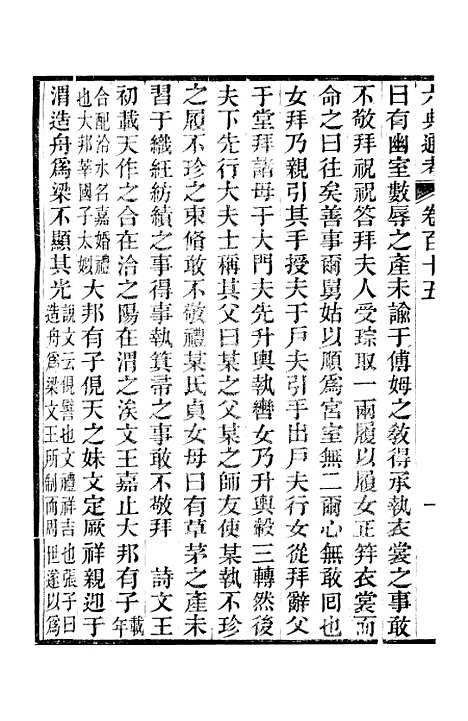 六典通考 卷百十五 一
曰有幽室數辱之產未諭于傅姆之教得承執衣裳之事敢
不敬拜祝祝答拜夫人受琮取一兩履以履女正笄衣裳而
命之曰往矣善事爾舅姑以順爲宮室無二爾心無敢囘也
女拜乃親引其手授夫于戶夫引手出戶夫行女從拜辭父
于堂拜諸母于大門夫先升輿執轡女乃升輿轂三轉然後
夫下先行大夫士稱其父曰某之父某之師友使某執不珍
之履不珍之束脩敢不敬禮某氏貞女母曰有草茅之產未
習于織紝紡績之事得事執箕帚之事敢不敬拜 詩文王
初載天作之合在洽之陽在渭之涘文王嘉止大邦有子載年
合配洽水名嘉婚禮也大邦莘國子太姒大邦有子俔天之妹文定厥祥親迎于
渭造舟爲梁不顯其光說文云俔譬也文禮祥吉也張子曰造舟爲梁文王所制而周世遂以爲